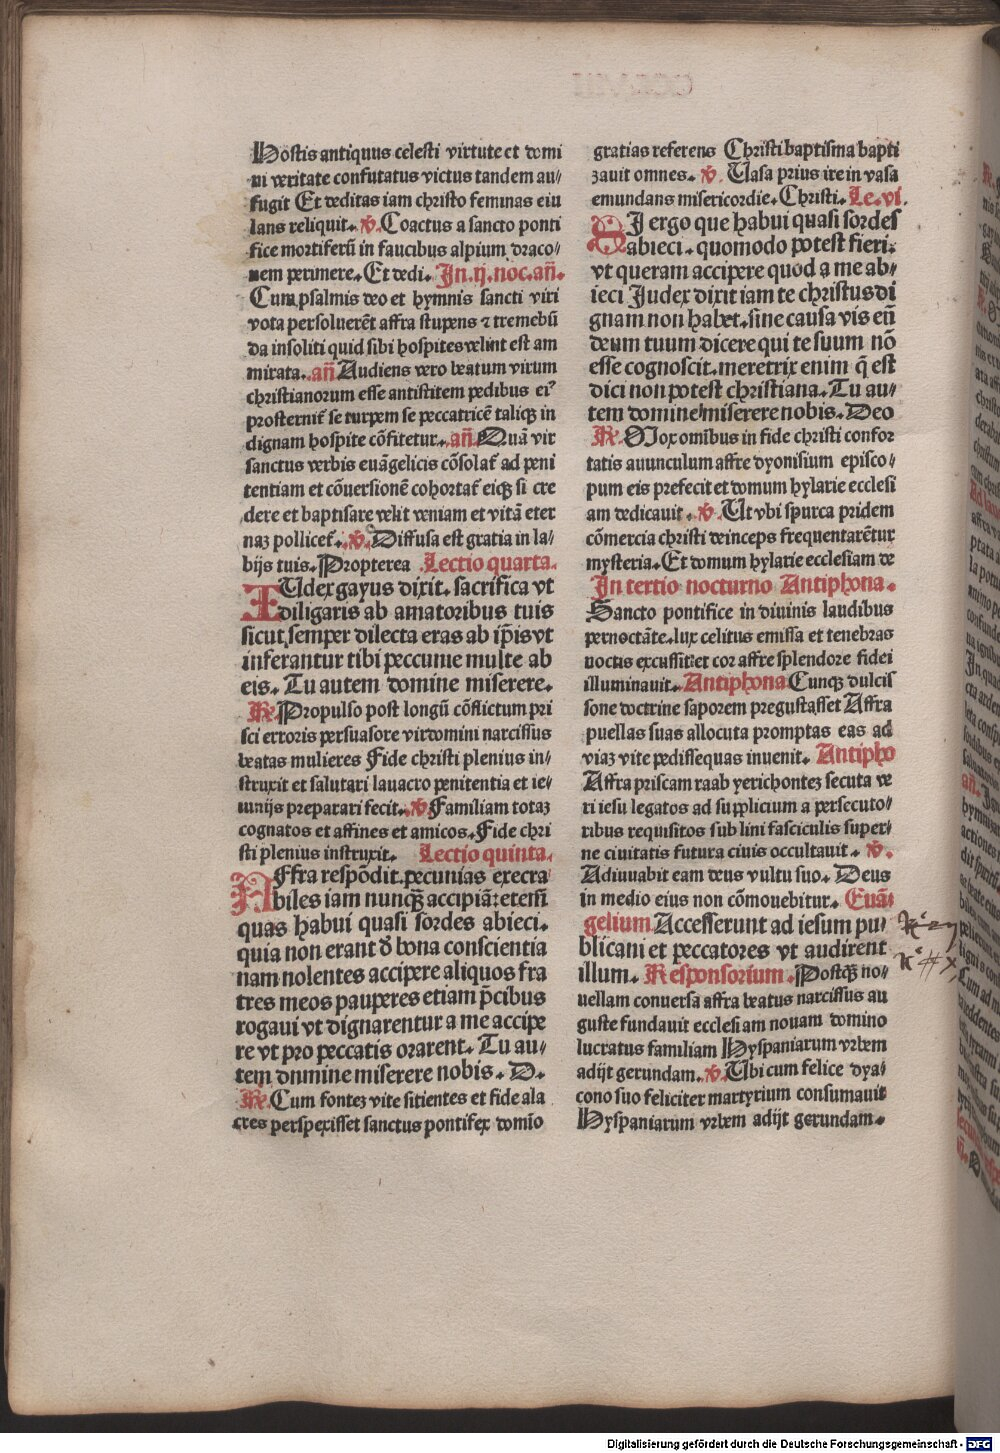 Hostis antiquus celesti virtute et domi
ni veritate confutatus victus tandem au⸗
fugit Et deditas iam christo feminas eiu
lans reliquit. ℣. Coactus a sancto ponti
fice mortiferū in faucibus alpium draco⸗
nem perimere. Et dedi. In.ij.noc.añ.
Cum psalmis deo et hymnis sancti viri
vota persoluerēt affra stupens ⁊ tremebū
da insoliti quid sibi hospites velint est am
mirata. añ Audiens vero beatum virum
christianorum esse antistitem pedibus eiꝰ
prosternit̄ se turpem se peccatricē taliqꝫ in
dignam hospite cōfitetur. añ. Quā vir
sanctus verbis euāgelicis cōsolat̄ ad peni
tentiam et cōuersionē cohortat̄ eiqꝫ si cre
dere et baptisare velit veniam et vitā eter
naꝫ pollicet̄. ℣. Diffusa est gratia in la⸗
bijs tuis. Propterea Lectio quarta.
IUdex gayus dixit. sacrifica vt
diligaris ab amatoribus tuis
sicut semper dilecta eras ab ip̄is vt
inferantur tibi peccunie multe ab
eis. Tu autem domine miserere.
℟. Propulso post longū cōflictum pri
sci erroris persuasore vir domini narcissus
beatas mulieres Fide christi plenius in⸗
struxit et salutari lauacro penitentia et ie⸗
iunijs preparari fecit. ℣. Familiam totaꝫ
cognatos et affines et amicos. Fide chri
sti plenius instruxit. Lectio quinta.
AFfra respōdit. pecunias execra
biles iam nunqꝫ̄ accipiā: etenī
quas habui quasi sordes abieci.
quia non erant ð bona conscientia
nam nolentes accipere aliquos fra
tres meos pauperes etiam p̄cibus
rogaui vt dignarentur a me accipe
re vt pro peccatis orarent. Tu au⸗
tem dnmine miserere nobis. D.
℟. Cum fonteꝫ vite sitientes et fide ala
cres perspexisset sanctus pontifex domīo
gratias referens Christi baptisma bapti
zauit omnes. ℣. Vasa prius ire in vasa
emundans misericordie. Christi. Le.vi.
SI ergo que habui quasi sordes
abieci. quomodo potest fieri.
vt queram accipere quod a me ab⸗
ieci Judex dixit iam te christus di
gnam non habet. sine causa vis eū
deum tuum dicere qui te suum nō
esse cognoscit. meretrix enim q̄ est
dici non potest christiana. Tu au⸗
tem domine miserere nobis. Deo
℟. Mox omībus in fide christi confor
tatis auunculum affre dyonisium episco⸗
pum eis prefecit et domum hylarie ecclesi
am dedicauit. ℣. Ut vbi spurca pridem
cōmercia christi deinceps frequentarētur
mysteria. Et domum hylarie ecclesiam de
In tertio nocturno Antiphona.
Sancto pontifice in diuinis laudibus
pernoctāte. lux celitus emissa et tenebras
noctis excussit: et cor affre splendore fidei
illuminauit. Antiphona Cunqꝫ dulcis
sone doctrine saporem pregustasset Affra
puellas suas allocuta promptas eas ad
viaꝫ vite pedissequas inuenit. Antipho
Affra priscam raab yerichonteꝫ secuta ve
ri iesu legatos ad supplicium a persecuto⸗
ribus requisitos sub lini fasciculis super⸗
ne ciuitatis futura ciuis occultauit. ℣.
Adiuuabit eam deus vultu suo. Deus
in medio eius non cōmouebitur. Euā⸗
gelium Accesserunt ad iesum pu⸗
blicani et peccatores vt audirent
illum. Responsorium. Postqꝫ no⸗
uellam conuersa affra beatus narcissus au
guste fundauit ecclesiam nouam domino
lucratus familiam Hyspaniarum vrbem
adijt gerundam. ℣. Ubi cum felice dya⸗
cono suo feliciter martyrium consumauit
Hyspaniarum vrbem adijt gerundam.
Digitalisierung gefördert durch die Deutsche Forschungsgemeinschaft - DFG